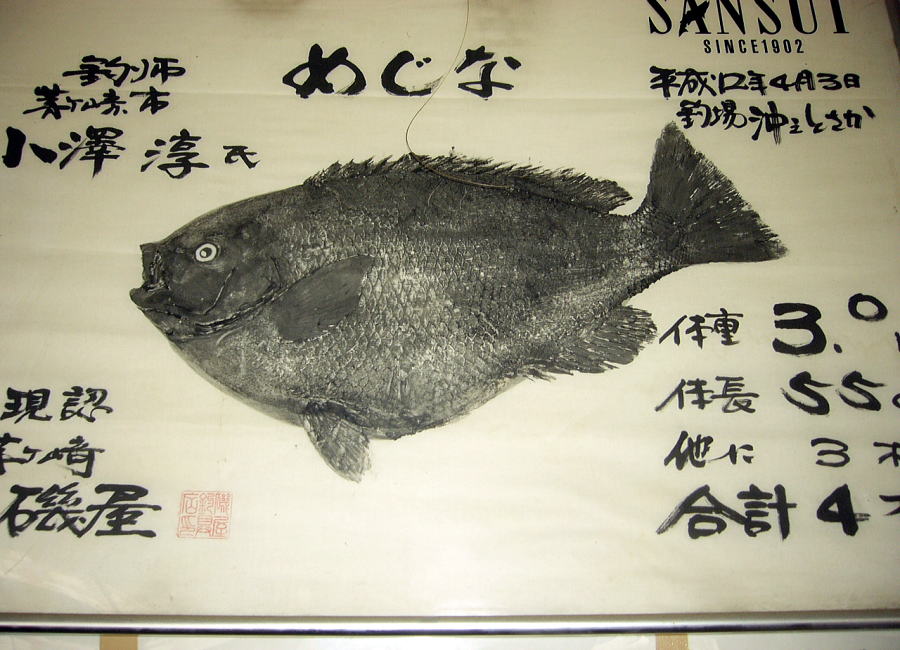 SANSUI
SINCE1902
めじな
平成12年4月3日
釣場 沖
釣り師
茅ヶ崎市
八澤 淳 氏
体重 3.0
体長 55
他に 3
合計 4
現認
茅ヶ崎
磯屋